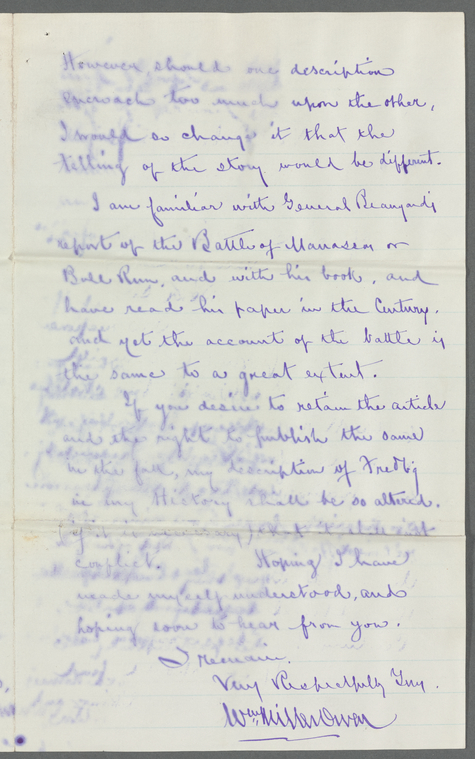 However, should one description
encroach too much upon the other,
I would so change it that the
telling of the story would be different.
I am familiar with General Beauregard's
report of the Battle of Manassas or
Bull Run, and with his book, and
have read his paper in the Century.
and yet the account of the battle is
the same to a great extent.
If you desire to retain the article
and the right to publish the same
in the fall, my description of Fredbg
in my History shall be so altered.
(if it is necessary) that it shall not
conflict. Hoping I have
made myself understood, and
hoping soon to hear from you.
I remain.
Very Respectfully Truy.
Wm Miller Owen